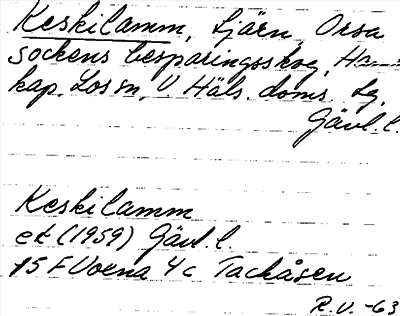 Keskilamm, tjärn, Orsa
sockens besparingsskog, Hamra
kap. Los sn, V. Häls. doms. Lg,
Gävl. l.
Keskilamm
ek (1959) Gävl. l.
15 F Voxna 4c Tackåsen
R.V. -63